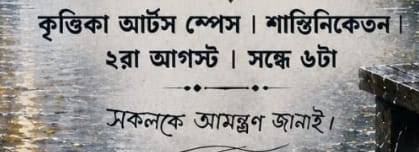 কৃত্তিকা আর্টস স্পেস | শান্তিনিকেতন |
২রা আগস্ট | সন্ধে ৬টা
সকলকে আমন্ত্রণ জানাই।